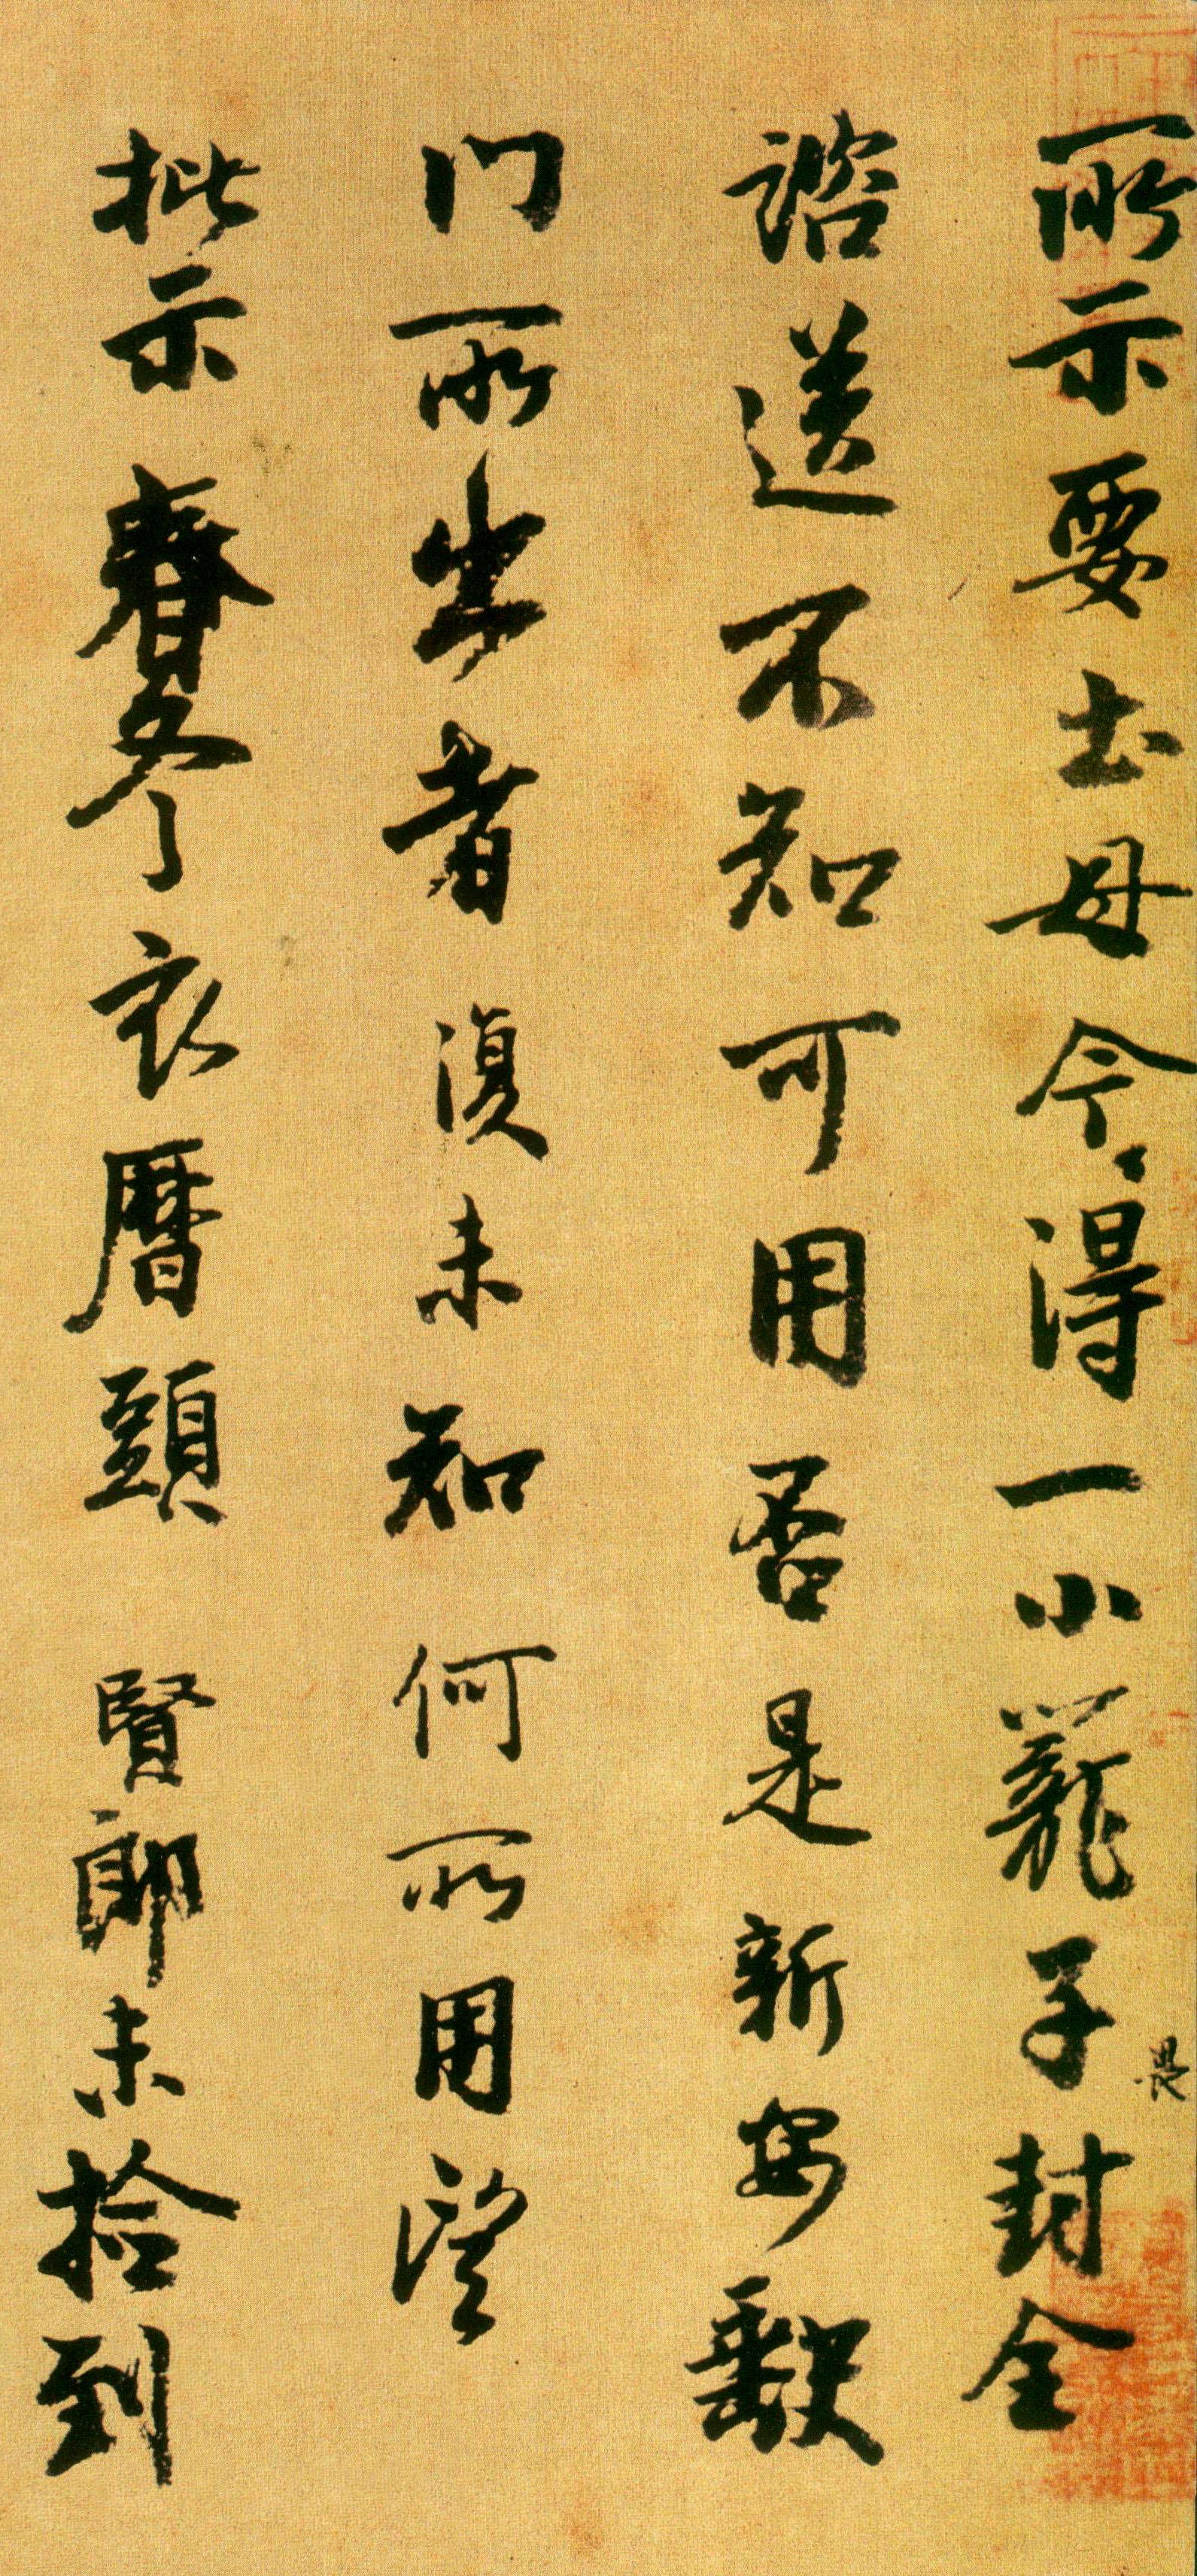 所示要土母今得一小籠子封全
畏
諮送不知可用否是新安缺
门所出者復未知何所用望
批示春冬衣曆頭賢郎未拾到